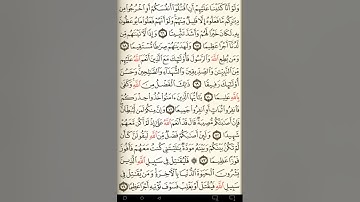 وَلَوْ أَنَّا كَتَبْنَا عَلَيْهِمْ أَنِ اقْتُلُوا أَنفُسَكُمْ أَوِ اخْرُجُوا مِن
دِيَارِكُم مَّا فَعَلُوهُ إِلَّا قَلِيلٌ مِّنْهُمْ وَلَوْ أَنَّهُمْ فَعَلُوا مَا يُوعَظُونَ
بِهِ لَكَانَ خَيْرًا لَّهُمْ وَأَشَدَّ تَثْبِيتًا ٦٦ وَإِذًا لَّآتَيْنَاهُم مِّن
لَّدُنَّا أَجْرًا عَظِيمًا ٦٧ وَلَهَدَيْنَاهُمْ صِرَاطًا مُّسْتَقِيمًا ٦٨
وَمَن يُطِعِ اللَّهَ وَالرَّسُولَ فَأُولَٰئِكَ مَعَ الَّذِينَ أَنْعَمَ اللَّهُ عَلَيْهِم
مِّنَ النَّبِيِّينَ وَالصِّدِّيقِينَ وَالشُّهَدَاءِ وَالصَّالِحِينَ وَحَسُنَ
أُولَٰئِكَ رَفِيقًا ٦٩ ذَٰلِكَ الْفَضْلُ مِنَ اللَّهِ وَكَفَىٰ
بِاللَّهِ عَلِيمًا ٧٠ يَا أَيُّهَا الَّذِينَ آمَنُوا خُذُوا حِذْرَكُمْ
فَانفِرُوا ثُبَاتٍ أَوِ انفِرُوا جَمِيعًا ٧١ وَإِنَّ مِنكُمْ لَمَن لَّيُبَطِّئَنَّ
فَإِنْ أَصَابَتْكُم مُّصِيبَةٌ قَالَ قَدْ أَنْعَمَ اللَّهُ عَلَيَّ إِذْ لَمْ أَكُن مَّعَهُمْ
شَهِيدًا ٧٢ وَلَئِنْ أَصَابَكُمْ فَضْلٌ مِّنَ اللَّهِ لَيَقُولَنَّ كَأَن
لَّمْ تَكُن بَيْنَكُمْ وَبَيْنَهُ مَوَدَّةٌ يَا لَيْتَنِي كُنتُ مَعَهُمْ فَأَفُوزَ
فَوْزًا عَظِيمًا ٧٣ فَلْيُقَاتِلْ فِي سَبِيلِ اللَّهِ الَّذِينَ
يَشْرُونَ الْحَيَاةَ الدُّنْيَا بِالْآخِرَةِ وَمَن يُقَاتِلْ فِي
سَبِيلِ اللَّهِ فَيُقْتَلْ أَوْ يَغْلِبْ فَسَوْفَ نُؤْتِيهِ أَجْرًا عَظِيمًا ٧٤